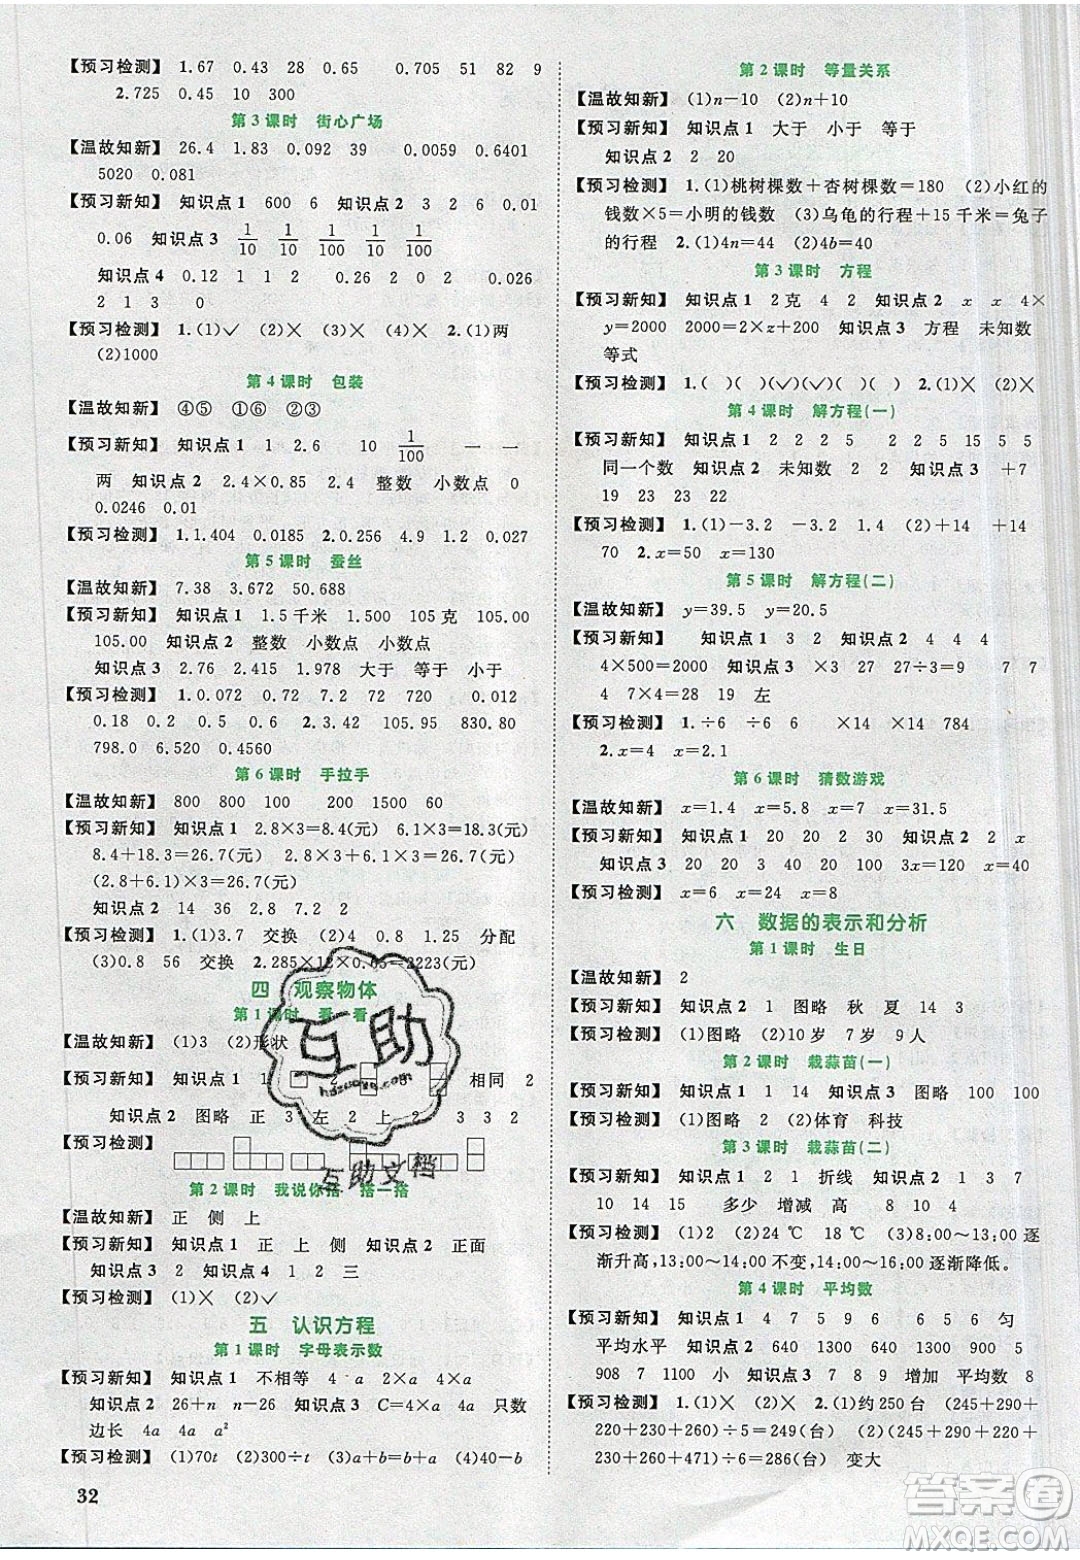 【预习检测】 1.67 0.43 28 65 0.705 51 82 9
2.725 0.45 10 300
第3课时 街心广场
【温故知新】 26.4 1.83 0.092 39 0.0059 0.6401
5020 0.081
【预习新知】 知识点1 600 6 知识点2 3 2 6 0.01
0.06 知识点3 1/10 1/10 1/10 1/10 1/100
知识点4 0.12 1 1 2 0.026 0.2 0.026
2 1 3 0
【预习检测】 1.(1)✓ (2)✕ (3)✕ (4)✕ 2.(1)两
(2)1000
第4课时 包装
【温故知新】 ④⑤ ①⑥ ②③
【预习新知】 知识点1 1 2.6 10 1/100 一 一
两 知识点2 2.4×0.85 2.4 整数 小数点 0
0.0246 0.01
【预习检测】 1.1.404 0.0185 2.0.256 4.9 1.2 0.027
第5课时 蚕丝
【温故知新】 7.38 3.672 50.688
【预习新知】 知识点1 1.5千米 1.500 105克 105.00
105.00 知识点2 整数 小数点 小数点
知识点3 2.76 2.415 1.978 大于 等于 小于
【预习检测】 1.0.072 0.72 7.2 72 720 0.012
0.18 0.2 0.5 0.6 2.3.42 105.95 830.80
798.0 6.520 0.4560
第6课时 手拉手
【温故知新】 800 800 100 200 1500 60
【预习新知】 知识点1 2.8×3=8.4(元) 6.1×3=18.3(元)
8.4+18.3=26.7(元) 2.8×3+6.1×3=26.7(元)
(2.8+6.1)×3=26.7(元)
知识点2 14 36 2.8 7.2 2
【预习检测】 1.(1)3.7 交换 (2)4 0.8 1.25 分配
(3)0.8 56 交换 2.285×12×0.65=2223(元)
四 观察物体
第1课时 看一看
【温故知新】 (1)3 (2)形状
【预习新知】 知识点1 1 2 3 相同 2
知识点2 图略 正 3 左 2 上 2 3 3 2
【预习检测】
第2课时 我说你搭 搭一搭
【温故知新】 正 侧 上
【预习新知】 知识点1 正 上 侧 知识点2 正面
知识点3 2 知识点4 1 2 三
【预习检测】 (1)✕ (2)✓
五 认识方程
第1课时 字母表示数
【预习新知】 知识点1 不相等 4 a 2×a 4×a
知识点2 26+n n-26 知识点3 C=4×a 4×a 只数
边长 4a 4a a²
【预习检测】 (1)70t (2)300÷t (3)a+b=b+a (4)10-b
32
第2课时 等量关系
【温故知新】 (1)n-10 (2)n+10
【预习新知】 知识点1 大于 小于 等于
知识点2 2 20
【预习检测】 1.(1)桃树棵数+杏树棵数=180 (2)小红的
钱数×5=小明的钱数 (3)乌龟的行程+15千米=兔子
的行程 2.(1)4n=44 (2)4b=40
第3课时 方程
【预习新知】 知识点1 2克 4 2 知识点2 x x 4×
y=2000 2000=2×z+200 知识点3 方程 未知数
等式
【预习检测】 1.( )( )(✓)(✓)( )( ) 2.(1)✕ (2)✕
第4课时 解方程(一)
【预习新知】 知识点1 2 2 2 5 2 2 5 15 5 5
同一个数 知识点2 未知数 2 2 知识点3 +7
19 23 23 22
【预习检测】 1.(1)-3.2 -3.2 1.4 (2)+14 +14
70 2.x=50 x=130
第5课时 解方程(二)
【温故知新】 y=39.5 y=20.5
【预习新知】 知识点1 3 2 知识点2 4 4 4
4×500=2000 知识点3 ×3 27 27÷3=9 7 7
4 7×4=28 19 左
【预习检测】 1.÷6 ÷6 6 ×14 ×14 784
2.x=4 x=2.1
第6课时 猜数游戏
【温故知新】 x=1.4 x=5.8 x=7 x=31.5
【预习新知】 知识点1 20 20 2 30 知识点2 2 x
知识点3 20 20 3 40 20 3x=120 40
【预习检测】 x=6 x=24 x=8
六 数据的表示和分析
第1课时 生日
【温故知新】 2
【预习新知】 知识点2 1 图略 秋 夏 14 3
【预习检测】 (1)图略 (2)10岁 7岁 9人
第2课时 栽蒜苗(一)
【预习新知】 知识点1 1 14 知识点3 图略 100 100
【预习检测】 (1)图略 (2)体育 科技
第3课时 栽蒜苗(二)
【预习新知】 知识点1 2 1 折线 知识点2 1 3 7
10 14 15 多少 增减 高 8 10 4
【预习检测】 (1)2 (2)24℃ 18℃ (3)8:00~13:00逐
渐升高,13:00~14:00不变,14:00~18:00逐渐降低。
第4课时 平均数
【预习新知】 知识点1 4 7 5 9 6 6 6 匀
平均水平 知识点2 640 1300 640 1300 5
908 7 1100 小 知识点3 7 8 9 增加 平均数 8
【预习检测】 1.(1)✕ (2)✕ 2.(1)约250台 (245+290+
220+230+260)÷5=249(台) (2)(245+290+220+
230+260+255)÷6=250(台) 变大
互助
hdzuoye.com
互助文档
答案圈
MXQE.COM